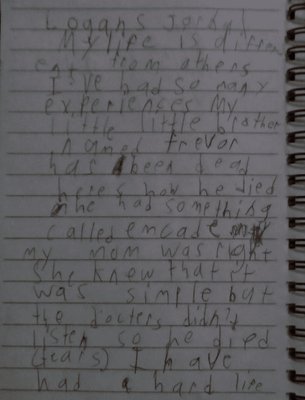 Logans jorhal
My life is differ
ent from others
I've had so many
experienses My
little little brother
named trevor
has been dead
here's how he died
he had something
called emcade
my mom was right
She knew that it
was simple but
the docters didn't
listen so he died
(tears) I have
had a hard life